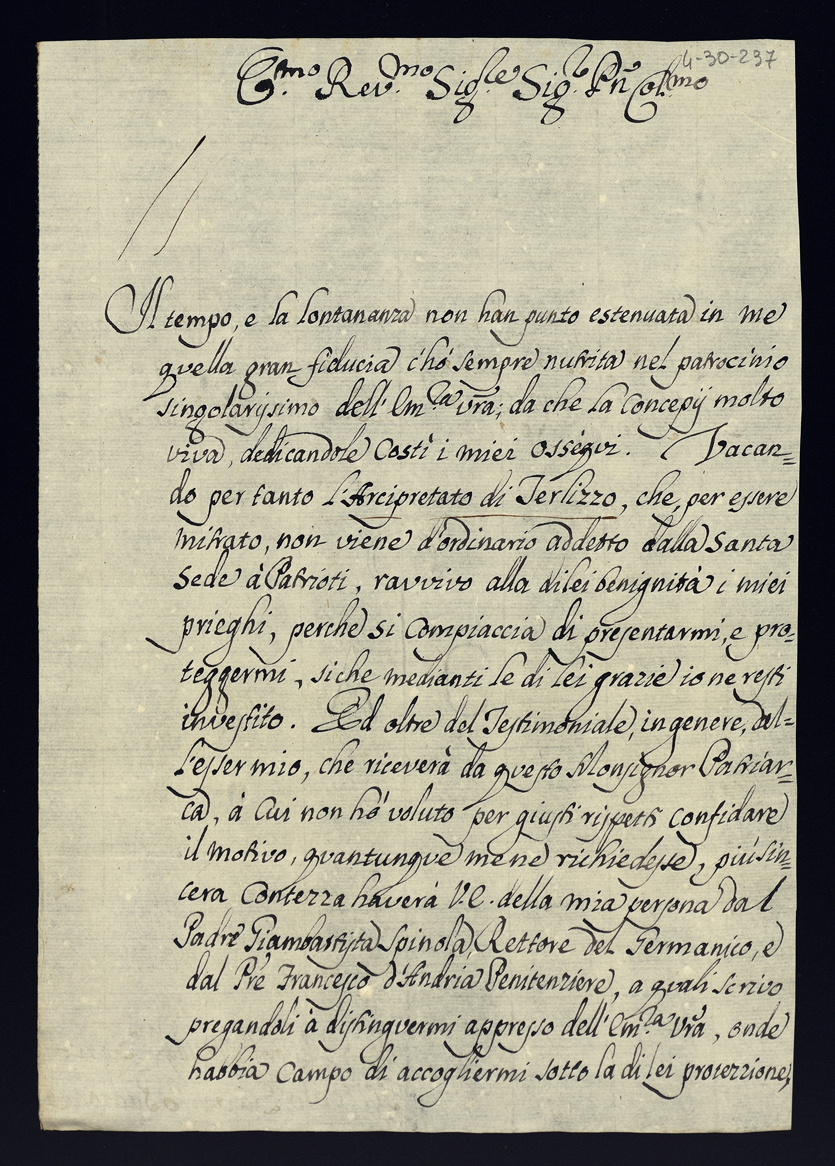 4-30-237
E.mo Rev.mo Sig.re Sig.r Pñ Col.mo
Il tempo, e la lontananza non han punto estenuata in me
quella gran fiducia c'hò sempre nutrita nel patrocinio
singolarissimo dell'Em.za Vrã; da che la concepij molto
viva, dedicandole costì i miei ossequi. Vacan=
do per tanto l'Arcipretato di Terlizzo, che, per essere
mitrato, non viene d'ordinario addetto dalla Santa
Sede à Patrioti, ravvivo alla di lei benignità i miei
prieghi, perche si compiaccia di presentarmi, e pro=
teggermi, si che medianti le di lei grazie io ne resti
investito. Ed oltre del Testimoniale, in genere, del=
l'esser mio, che riceverà da questo Monsignor Patriar=
ca, à cui non hò voluto per giusti rispetti confidare
il motivo, quantunque me ne richiedesse, più sin=
cera contezza haverà V.E. della mia persona dal
Padre Giambattista Spinola, Rettore del Germanico, e
dal Prẽ Francesco d'Andria Penitenziere, a quali scrivo
pregandoli à distinguermi appresso dell'Em.za Vrã, onde
habbia campo di accogliermi sotto la di lei protezzione,